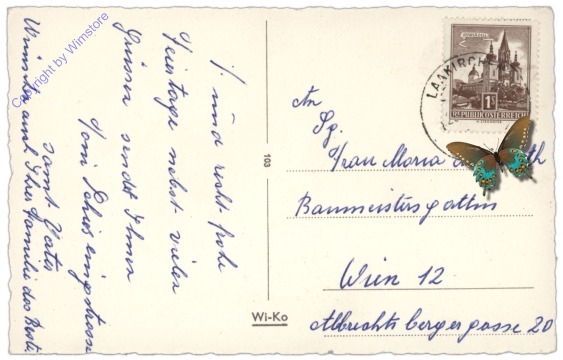 Copyright by Wimstore
f. und recht frohe
Feiertage nebst vielen
Grüssen sendet Ihnen
Toni
samt Vater
Wünscht auch Ihrer Familie das Beste
103
Wi-Ko
LAAKIRCHEN
1S
REPUBLIK ÖSTERREICH
An
Frau Maria
Baumeistersgattin
Wien 12
Albrechtsbergergasse 20